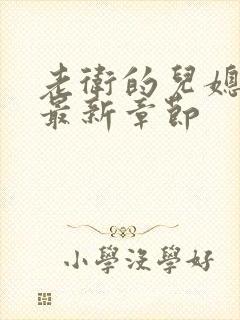 老衛的兒媳
最新章節
小學沒學好